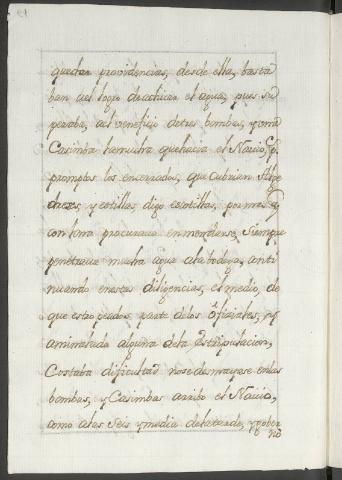 quedan providencias, desde ella, basta
ban ael logro deachicar el agua, pues su
peraba, ael veneficio detres bombas, y una
Casimba lamucha quehacia el Navio,
promptos los encerados, que Cubrian
y escotillas, digo escotillas, por mas q
con lona procurava enmendarse, siempre
penetrava mucha agua alabodega, conti
nuando enestas diligencias, el medio, de
que estropeados, parte delos Oficiales, y
aminorada alguna dela Estripulacion,
Costaba dificultad nose desmayase enlas
bombas, y Casimbas arribo el Navio,
como alas seis y media delatarde, y gober
no